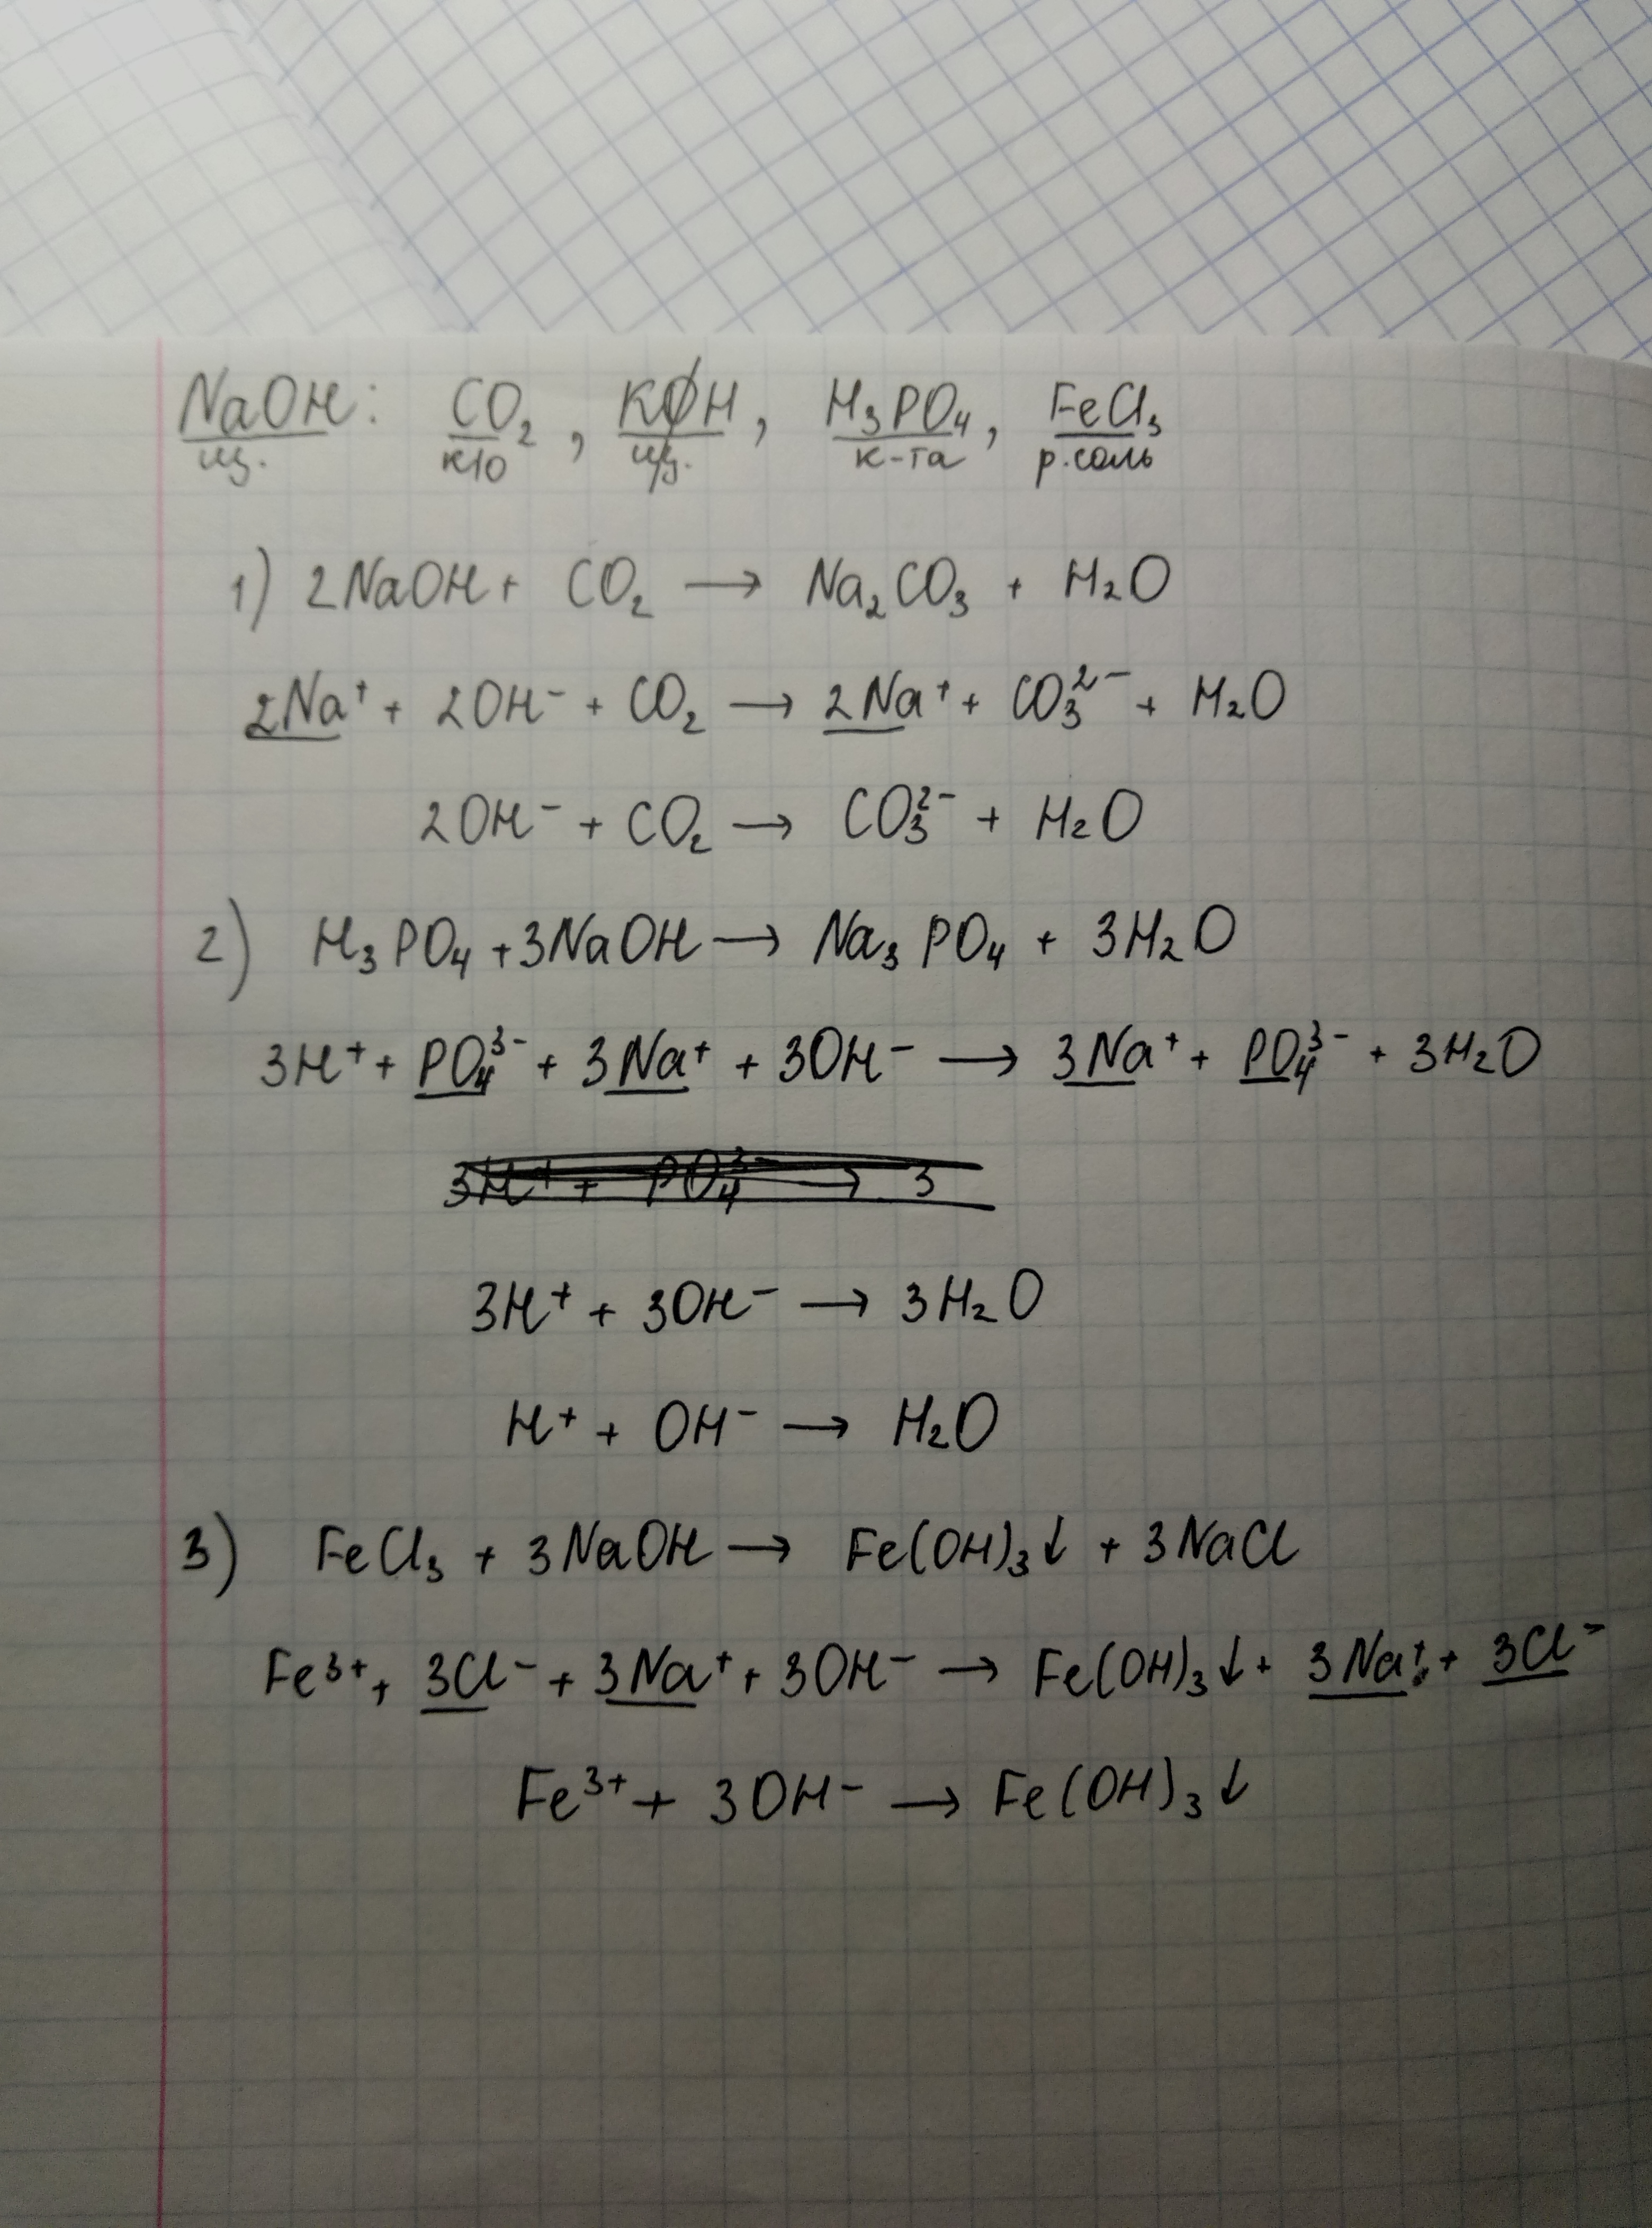 NaOH: CO₂, KOH, H₃PO₄, FeCl₃
щ. к/о щ. к-та р.соль
1) 2NaOH + CO₂ → Na₂CO₃ + H₂O
2Na⁺ + 2OH⁻ + CO₂ → 2Na⁺ + CO₃²⁻ + H₂O
2OH⁻ + CO₂ → CO₃²⁻ + H₂O
2) H₃PO₄ + 3NaOH → Na₃PO₄ + 3H₂O
3H⁺ + PO₄³⁻ + 3Na⁺ + 3OH⁻ → 3Na⁺ + PO₄³⁻ + 3H₂O
3H⁺ + PO₄³⁻ → 3
3H⁺ + 3OH⁻ → 3H₂O
H⁺ + OH⁻ → H₂O
3) FeCl₃ + 3NaOH → Fe(OH)₃↓ + 3NaCl
Fe³⁺ + 3Cl⁻ + 3Na⁺ + 3OH⁻ → Fe(OH)₃↓ + 3Na⁺ + 3Cl⁻
Fe³⁺ + 3OH⁻ → Fe(OH)₃↓